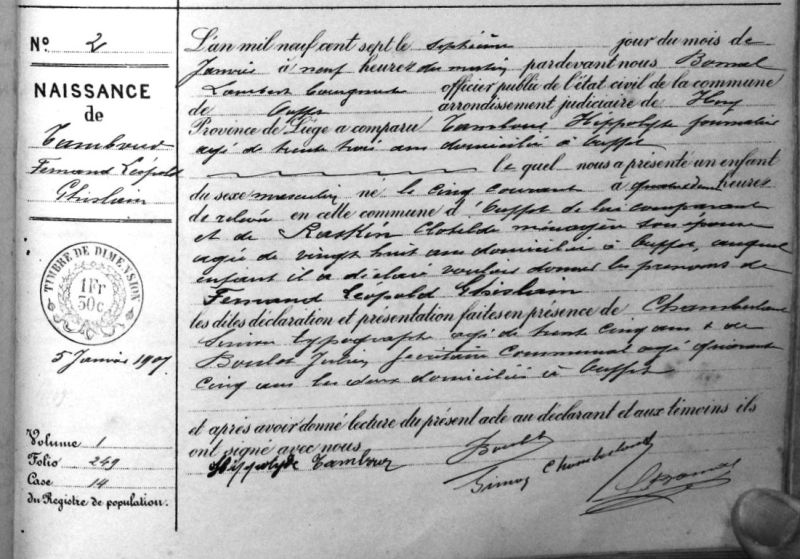 N° 2
NAISSANCE
de
Tambour
Fernand Léopold
Ghislain
TIMBRE DE DIMENSION
1 Fr
50 c
5 Janvier 1907
Volume 1
Folio 249
Case 14
du Registre de population.
L'an mil neuf cent sept le septième jour du mois de
Janvier à neuf heures du matin pardevant nous Bomal
Lambert officier public de l'état civil de la commune
de Ouffet arrondissement judiciaire de Huy
Province de Liège a comparu Tambour Hippolyte journalier
agé de trente trois ans domicilié à Ouffet
le quel nous a présenté un enfant
du sexe masculin né le cinq courant à quatre heures
de relevée en cette commune d'Ouffet de lui comparant
et de Raskin Clotilde ménagère son épouse
agée de vingt huit ans domiciliée à Ouffet, auquel
enfant il a déclaré vouloir donner les prénoms de
Fernand Léopold Ghislain
les dites déclaration et présentation faites en présence de Chamberland
Simon typographe agé de trente cinq ans & de
Boulet Julien Secrétaire Communal agé quarante
cinq ans les deux domiciliés à Ouffet
et après avoir donné lecture du présent acte au déclarant et aux témoins ils
ont signé avec nous
Hippolyte Tambour
Boulet
Simon Chamberland
L Bomal